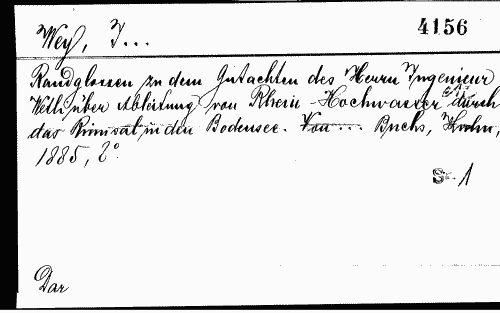 Wey, J...
4156
Randglossen zu dem Gutachten des Herrn Ingenieur
Wetli über Ableitung von Rhein-Hochwasser durch
das Rinnsal in den Bodensee. Von... Buchs, Kuhn,
1885, 8°.
S. 1
Dar